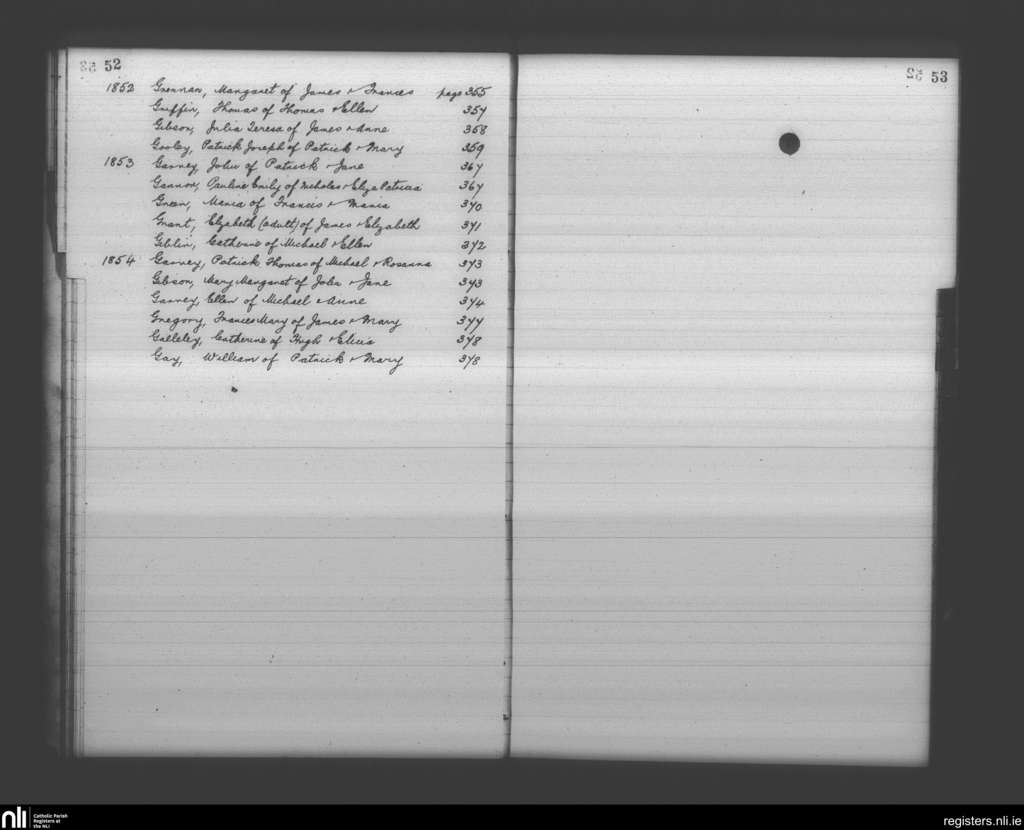 52
1852 Grennan, Margaret of James & Frances page 355
Griffin, Thomas of Thomas & Ellen 357
Gibson, Julia Teresa of James & Anne 358
Gooley, Patrick Joseph of Patrick & Mary 359
1853 Garvey, John of Patrick & Jane 367
Gannon, Pauline Emily of Nicholas & Eliza Patricia 367
Green, Maria of Francis & Maria 370
Grant, Elizabeth (adult) of James & Elizabeth 371
Giblin, Catherine of Michael & Ellen 372
1854 Garvey, Patrick Thomas of Michael & Rosanna 373
Gibson, Mary Margaret of John & Jane 373
Garvey, Ellen of Michael & Anne 374
Gregory, Frances Mary of James & Mary 377
Galleley, Catherine of Hugh & Elicia 378
Gay, William of Patrick & Mary 378
53
nli Catholic Parish Registers at the NLI
registers.nli.ie